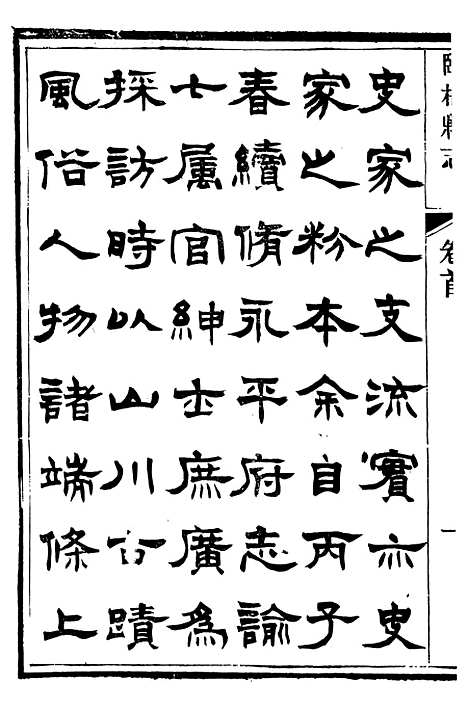 臨榆縣志
卷首
一
史家之支流實亦史
家之粉本余自丙子
春續脩永平府志諭
七属官紳士庶廣為
採訪時以山川古蹟
風俗人物諸端條上